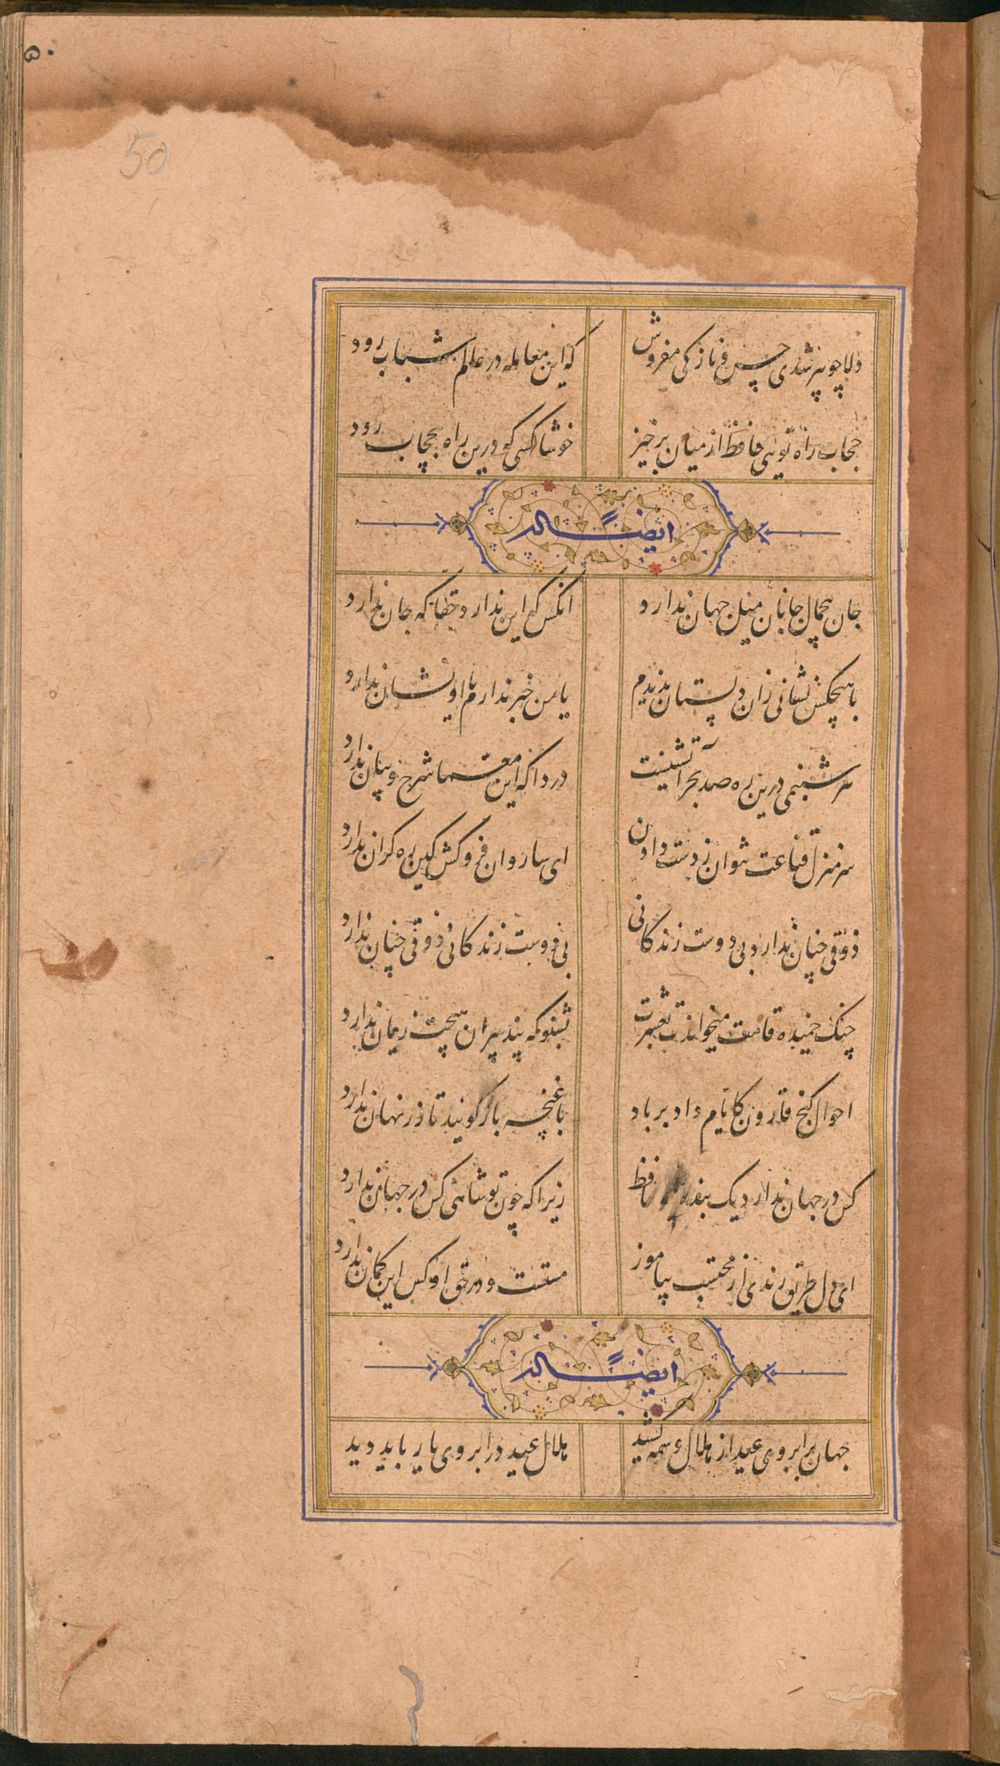 ۵۰
50
دلا چو پیر شدی حسن و نازکی مفروش که این معامله در عالم شباب رود
حجاب راه تویی حافظ از میان برخیز خوشا کسی کو درین راه بیحجاب رود
ایضاً له
جان بیجمال جانان میل جهان ندارد انکس که این ندارد حقا که جان ندارد
با هیچکس نشانی زان دلستان ندیدم یا من خبر ندارم یا او نشان ندارد
هر شبنمی درین ره صد بحر آتشینست دردا که این معما شرح و بیان ندارد
سر منزل قناعت نتوان ز دست دادن ای ساروان فروکش کین ره کران ندارد
ذوقی چنان ندارد بی دوست زندکانی بی دوست زندکانی ذوقی چنان ندارد
چنک خمیده قامت میخواندت بعشرت بشنو که پند پیران هیچت زیان ندارد
احوال کنج قارون کایام داد بر باد با غنچه باز کویید تا زر نهان ندارد
کس در جهان ندارد یک بنده حافظ زیرا که چون تو شاهی کس در جهان ندارد
ای دل طریق رندی از محتسب بیاموز مستست و در حق او کس این کمان ندارد
ایضاً له
جهان بر ابروی عید از هلال وسمه کشید هلال عید در ابروی یار باید دید